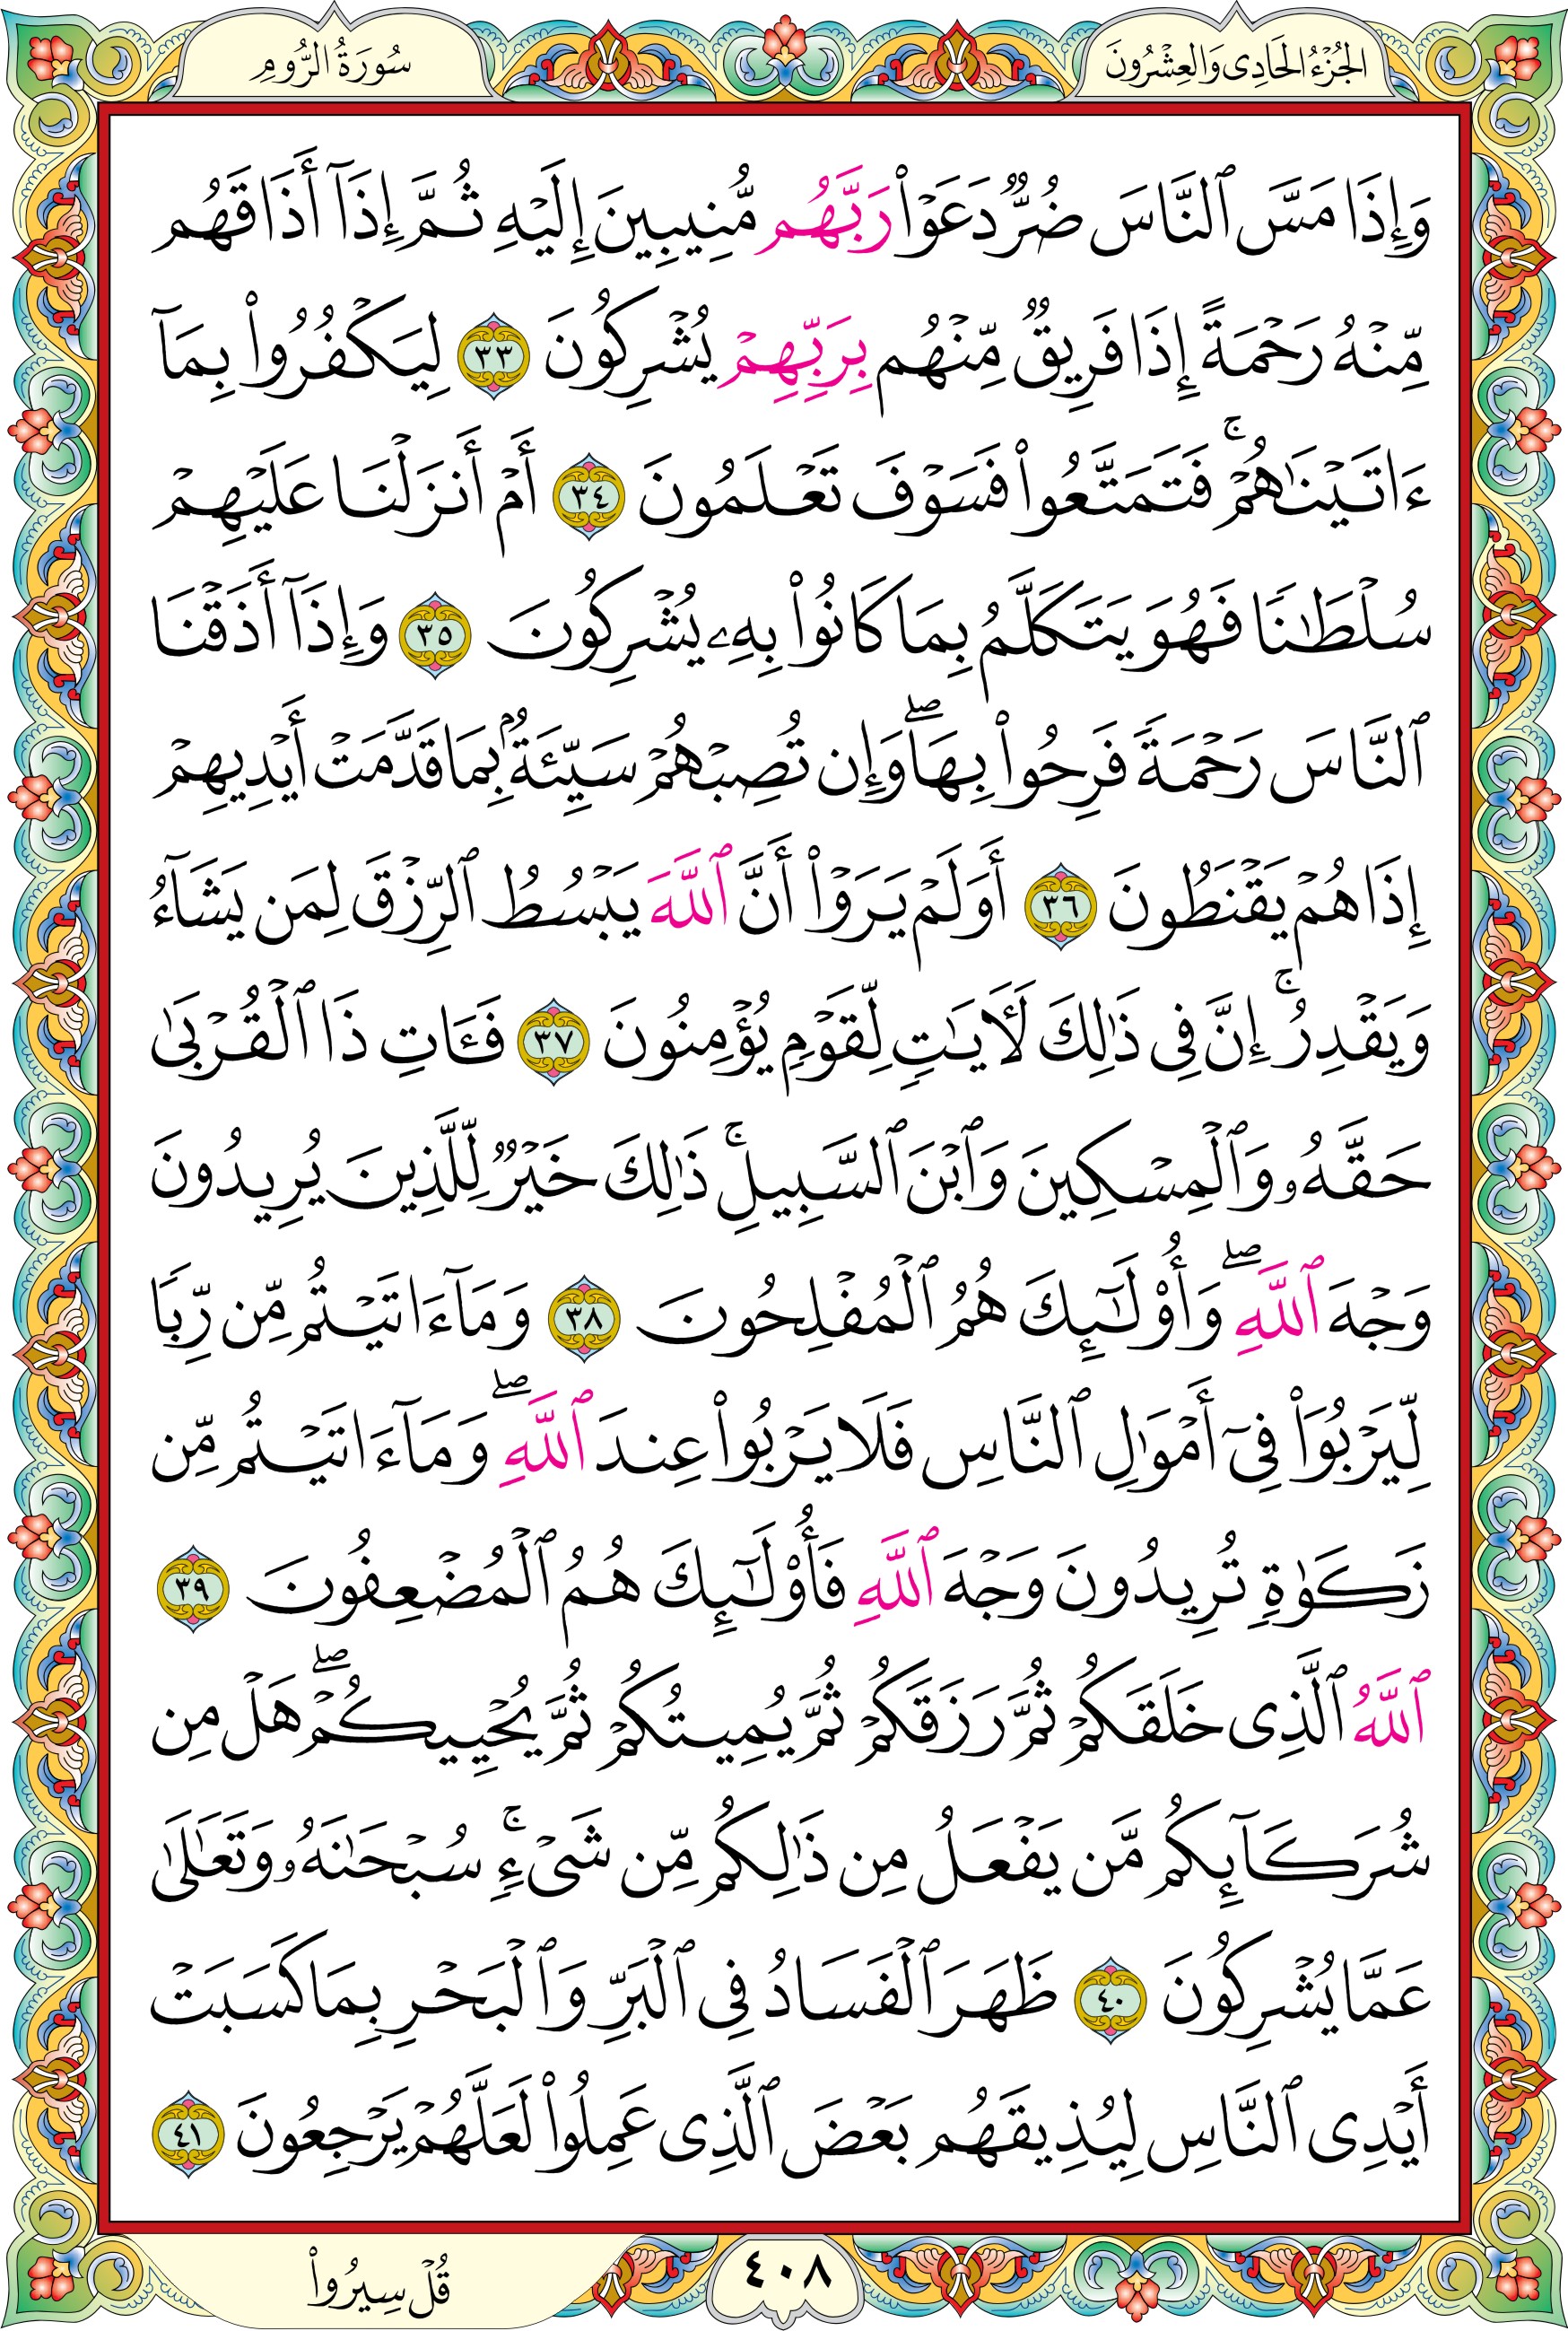 الجُزْءُ الحَادِى وَالعِشْرُونَ
سُورَةُ الرُّومِ
وَإِذَا مَسَّ ٱلنَّاسَ ضُرٌّ دَعَوْا۟ رَبَّهُم مُّنِيبِينَ إِلَيْهِ ثُمَّ إِذَآ أَذَاقَهُم
مِّنْهُ رَحْمَةً إِذَا فَرِيقٌ مِّنْهُم بِرَبِّهِمْ يُشْرِكُونَ ٣٣ لِيَكْفُرُوا۟ بِمَآ
ءَاتَيْنَٰهُمْ ۚ فَتَمَتَّعُوا۟ فَسَوْفَ تَعْلَمُونَ ٣٤ أَمْ أَنزَلْنَا عَلَيْهِمْ
سُلْطَٰنًا فَهُوَ يَتَكَلَّمُ بِمَا كَانُوا۟ بِهِۦ يُشْرِكُونَ ٣٥ وَإِذَآ أَذَقْنَا
ٱلنَّاسَ رَحْمَةً فَرِحُوا۟ بِهَا ۖ وَإِن تُصِبْهُمْ سَيِّئَةٌۢ بِمَا قَدَّمَتْ أَيْدِيهِمْ
إِذَا هُمْ يَقْنَطُونَ ٣٦ أَوَلَمْ يَرَوْا۟ أَنَّ ٱللَّهَ يَبْسُطُ ٱلرِّزْقَ لِمَن يَشَآءُ
وَيَقْدِرُ ۚ إِنَّ فِى ذَٰلِكَ لَءَايَٰتٍ لِّقَوْمٍ يُؤْمِنُونَ ٣٧ فَـَٔاتِ ذَا ٱلْقُرْبَىٰ
حَقَّهُۥ وَٱلْمِسْكِينَ وَٱبْنَ ٱلسَّبِيلِ ۚ ذَٰلِكَ خَيْرٌ لِّلَّذِينَ يُرِيدُونَ
وَجْهَ ٱللَّهِ ۖ وَأُو۟لَٰٓئِكَ هُمُ ٱلْمُفْلِحُونَ ٣٨ وَمَآ ءَاتَيْتُم مِّن رِّبًا
لِّيَرْبُوَا۟ فِىٓ أَمْوَٰلِ ٱلنَّاسِ فَلَا يَرْبُوا۟ عِندَ ٱللَّهِ ۖ وَمَآ ءَاتَيْتُم مِّن
زَكَوٰةٍ تُرِيدُونَ وَجْهَ ٱللَّهِ فَأُو۟لَٰٓئِكَ هُمُ ٱلْمُضْعِفُونَ ٣٩
ٱللَّهُ ٱلَّذِى خَلَقَكُمْ ثُمَّ رَزَقَكُمْ ثُمَّ يُمِيتُكُمْ ثُمَّ يُحْيِيكُمْ ۖ هَلْ مِن
شُرَكَآئِكُم مَّن يَفْعَلُ مِن ذَٰلِكُم مِّن شَىْءٍ ۚ سُبْحَٰنَهُۥ وَتَعَٰلَىٰ
عَمَّا يُشْرِكُونَ ٤٠ ظَهَرَ ٱلْفَسَادُ فِى ٱلْبَرِّ وَٱلْبَحْرِ بِمَا كَسَبَتْ
أَيْدِى ٱلنَّاسِ لِيُذِيقَهُم بَعْضَ ٱلَّذِى عَمِلُوا۟ لَعَلَّهُمْ يَرْجِعُونَ ٤١
٤٠٨
قُلْ سِيرُوا۟